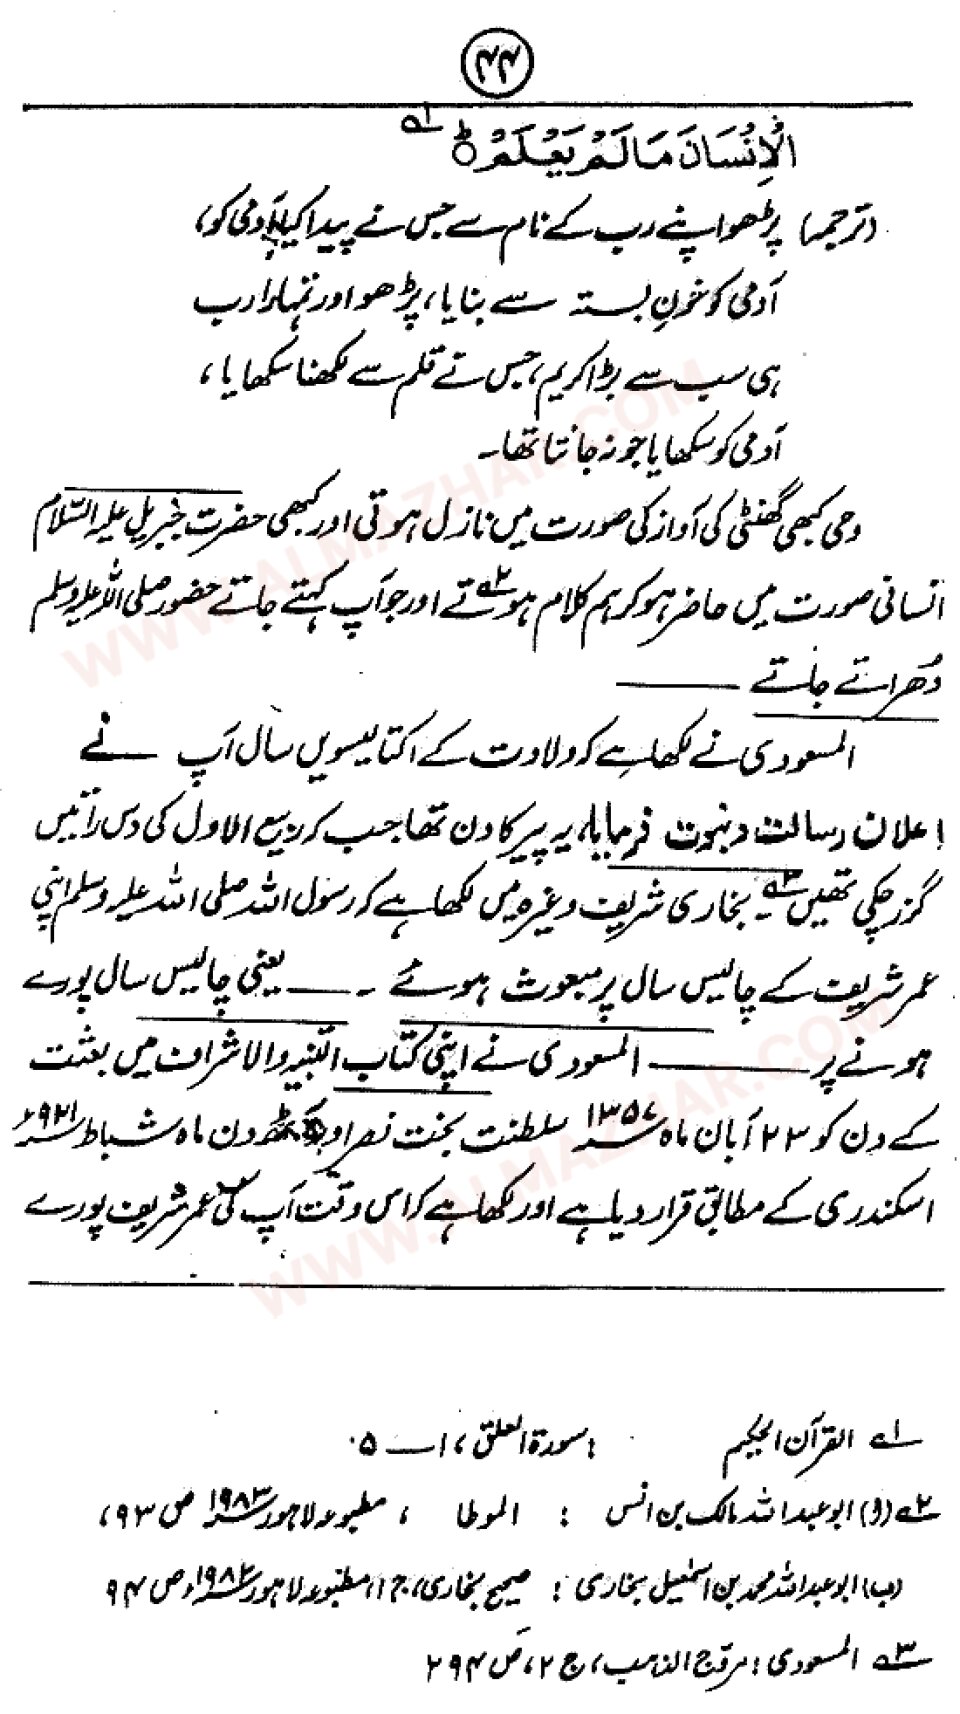 ۴۴
الْاِنْسَانَ مَا لَمْ یَعْلَمْ ۝ ۱؎
(ترجمہ) پڑھو اپنے رب کے نام سے جس نے پیدا کیا آدمی کو،
آدمی کو خونِ بستہ سے بنایا، پڑھو اور تمہارا رب
ہی سب سے بڑا کریم، جس نے قلم سے لکھنا سکھایا،
آدمی کو سکھایا جو نہ جانتا تھا۔
وحی کبھی گھنٹی کی آواز کی صورت میں نازل ہوتی اور کبھی حضرت جبریل علیہ السّلام
انسانی صورت میں حاضر ہو کر ہم کلام ہوتے ۲؎ اور جو آپ کہتے جاتے حضور صلی اللہ علیہ وسلم
دُھراتے جاتے ———
المسعودی نے لکھا ہے کہ ولادت کے اکتالیسویں سال آپ — نے
اعلان رسالت و نبوت فرمایا، یہ پیر کا دن تھا جب کہ ربیع الاول کی دس راتیں
گزر چکی تھیں ۳؎ بخاری شریف وغیرہ میں لکھا ہے کہ رسول اللہ صلی اللہ علیہ وسلم اپنی
عمر شریف کے چالیس سال پر مبعوث ہوئے ۔— یعنی چالیس سال پورے
ہونے پر ——— المسعودی نے اپنی کتاب التنبیہ والاشراف میں بعثت
کے دن کو ۲۳ آبان ماہ ۱۳۵۷ھ سلطنت بخت نصر اور دن ماہ شباط ۹۲۱ء
اسکندری کے مطابق قرار دیا ہے اور لکھا ہے کہ اس وقت آپ کی عمر شریف پورے
۱؎ القرآن الحکیم : سورۃ العلق، ۱—۵۰
۲؎ (ا) ابو عبداللہ مالک بن انس : الموطا ، مطبوعہ لاہور ۱۹۸۳ء ص ۹۳،
(ب) ابو عبداللہ محمد بن اسمٰعیل بخاری : صحیح بخاری، ج ۱، مطبوعہ لاہور ۱۹۸۲ء، ص ۹۴
۳؎ المسعودی : مروّج الذہب، ج ۲، ص ۲۹۴
WWW.ALMAZHAR.COM
WWW.ALMAZHAR.COM